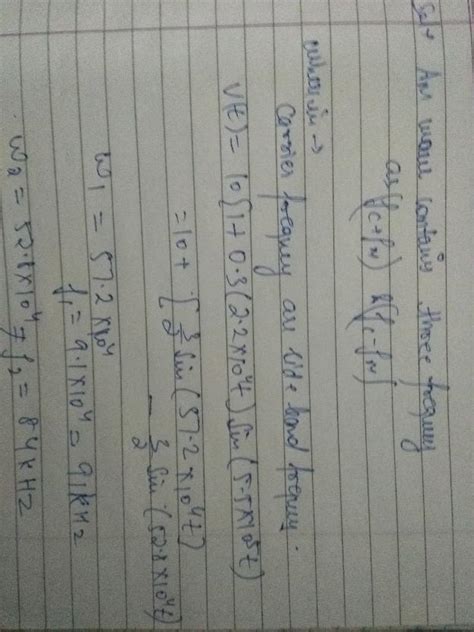 Sol→ AM wave contains three frequency
as (fc+fm) & (fc-fm)
which is →
Carrier frequency are side band frequency.
V(t) = 10[1+0.3(2.2×10⁴t) sin(5.5×10⁵t)
= 10+ [3/2 sin(57.2×10⁴t)
- 3/2 sin(52.8×10⁴t)
w₁ = 57.2×10⁴
f₁ = 9.1×10⁴ = 91kHz
w₂ = 52.8×10⁴ = f₂ = 84kHz